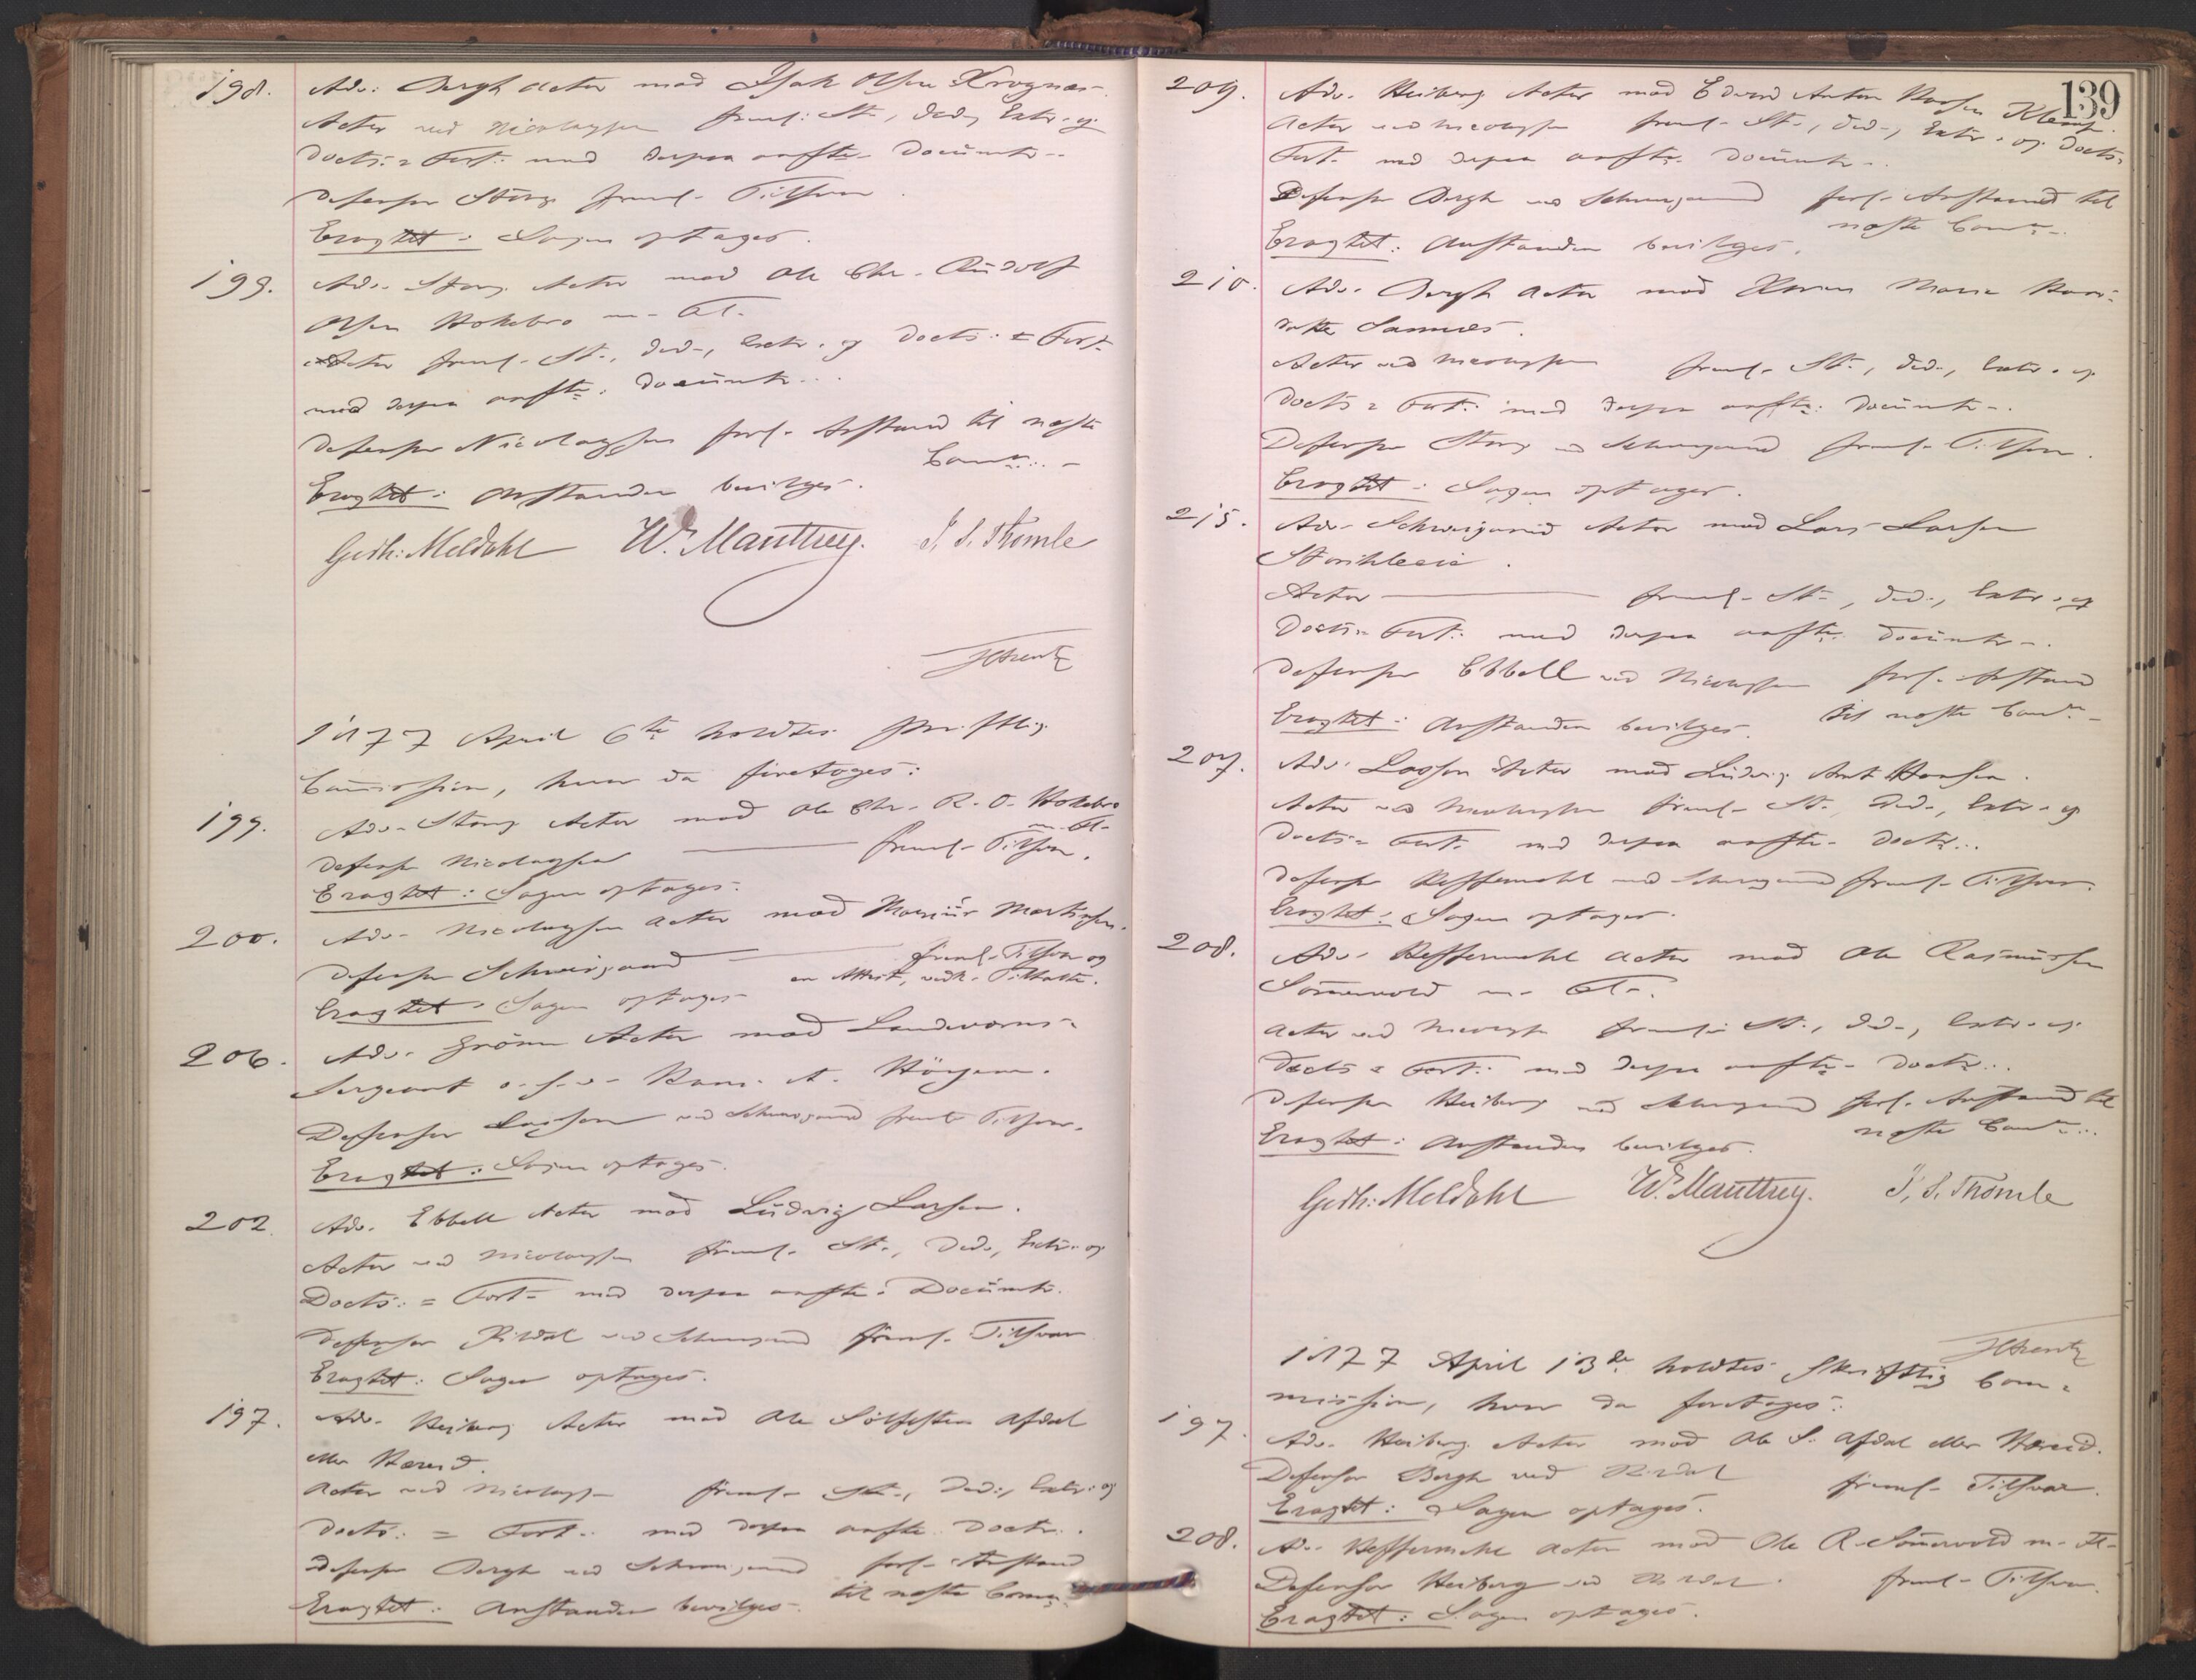 198. Adv. Bergh Actor mod Isak Olsen Krognæs.
Actor ved Nicolaysen freml. St., Ded., Extr. og
Docts: = Fort. med derpaa anfte. Documtr.
Defensor Stang freml. Tilsvar.
Eragtet: Sagen optages.
199. Adv. Stang Actor mod Ole Chr. Rudolf
Olsen Hokebro m. Fl.
Actor freml. St., Ded., Extr. og Docts: = Fort.
med derpaa anfte. Documtr.
Defensor Nicolaysen forl. Anstand til næste
Comn.
Eragtet: Anstanden bevilges.
Gerh: Meldahl W. Manthey. J. S. Thomle
1877 April 6te holdtes skriftlig
Commission, hvor da foretoges:
199. Adv. Stang Actor mod Ole Chr. R. O. Hokebro
m. Fl.
Defensor Nicolaysen — freml. Tilsvar.
Eragtet: Sagen optages.
200. Adv. Nicolaysen Actor mod Martinsen.
Defensor Schweigaard — freml. Tilsvar og
en Attest, vedk. Tiltalte.
Eragtet: Sagen optages
206. Adv. Grönn Actor mod Landværns-
Sergeant o. s. v. Hans A. Höyem.
Defensor Lasson ved Schweigaard freml. Tilsvar.
Eragtet: Sagen optages.
202. Adv. Ebbell Actor mod Ludvig Larsen.
Actor ved Nicolaysen freml. St., Ded., Extr. og
Docts: = Fort. med derpaa anfte. Documtr.
Defensor Rivdal ved Schweigaard freml. Tilsvar
Eragtet: Sagen optages.
197. Adv. Heiberg Actor mod Ole Sölfesten Afdal
eller Hæreid.
Actor ved Nicolaysen freml. St., Ded., Extr. og
Docts: = Fort. med derpaa anfte. Doctr.
Defensor Bergh ved Schweigaard forl. Anstand
til næste Comn.
Eragtet: Anstanden bevilges.
139
209. Adv. Heiberg Actor mod Edvard Anton Klemp.
Actor ved Nicolaysen freml. St., Ded., Extr. og Docts:
Fort. med derpaa anfte. Documtr.
Defensor Bergh ved Schweigaard forl. Anstand til
næste Comn.
Eragtet: Anstanden bevilges.
210. Adv. Bergh Actor mod Karen Marie
datter Sannæs.
Actor ved Nicolaysen freml. St., Ded., Extr. og
Docts = Fort. med derpaa anfte. Documtr.
Defensor Stang ved Schweigaard freml. Tilsvar.
Eragtet: Sagen optages.
215. Adv. Schweigaard Actor mod Lars Larsen
Actor — freml. St., Ded., Extr. og
Docts = Fort. med derpaa anfte. Documtr.
Defensor Ebbell ved Nicolaysen forl. Anstand
til næste Comn.
Eragtet: Anstanden bevilges.
207. Adv. Lasson Actor mod Ludvig Hansen.
Actor ved Nicolaysen freml. St., Ded., Extr. og
Docts = Fort. med derpaa anfte. Doctr.
Defensor Heffermehl ved Schweigaard freml. Tilsvar.
Eragtet: Sagen optages.
208. Adv. Heffermehl Actor mod Ole Rasmussen
Sönnervold m. Fl.
Actor ved Nicolaysen freml. St., Ded., Extr. og
Docts = Fort. med derpaa anfte. Doctr.
Defensor Heiberg ved Schweigaard forl. Anstand til
næste Comn.
Eragtet: Anstanden bevilges.
Gerh: Meldahl W. Manthey. J. S. Thomle
1877 April 13de holdtes Skriftlig Com-
mission, hvor da foretoges:
197. Adv. Heiberg Actor mod Ole S. Afdal eller Hæreid.
Defensor Bergh ved Rivdal freml. Tilsvar.
Eragtet: Sagen optages.
208. Adv. Heffermehl Actor mod Ole R. Sönnervold m. Fl.
Defensor Heiberg ved Rivdal freml. Tilsvar.
Eragtet: Sagen optages.